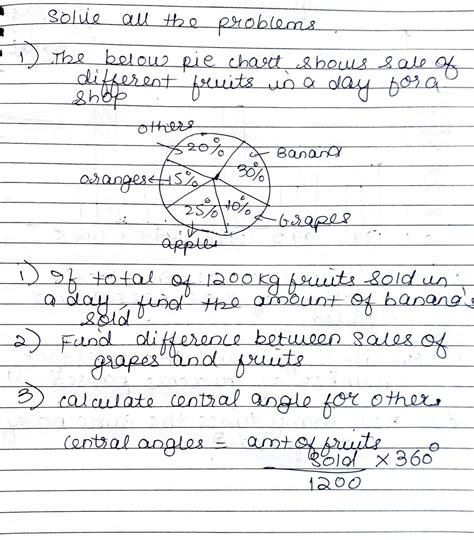 Solve all the problems
1) The below pie chart shows sale of
different fruits in a day for a
shop
others
20%
Banana
30%
oranges
15%
25%
10%
Grapes
apple
1) If total of 1200kg fruits sold in
a day, find the amount of banana's
sold.
2) Find difference between sales of
grapes and fruits
3) calculate central angle for others
central angles = amt of fruits
sold × 360°
1200